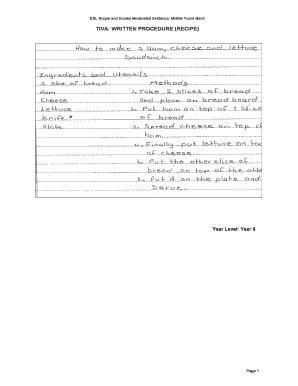 ESL Scope and Scales Moderated Evidence: Middle Years Band
TIVA: WRITTEN PROCEDURE (RECIPE)
How to make a Ham, cheese and lettuce
Sandwich.
Ingredients and Utensils
2 slice of bread Methods
Ham 1. Take 2 slices of bread
Cheese and place on bread board
Lettuce 2. Put ham on top of 1 slice
Knife. of bread
Plate 3. Spread cheese on top of
ham.
4. Finally put lettuce on to
of cheese
5. Put the other slice of
bread on top of the oth
6. Put it on the plate and
Serve
Year Level: Year 6
Page 1